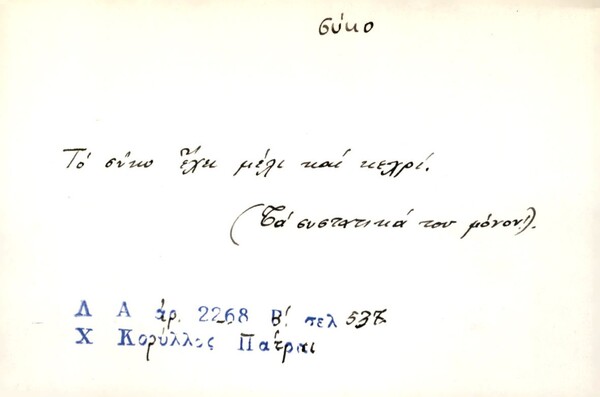 σύκο
Τό σῦκο ἔχει μέλι καί κεχρί.
(Τά συστατικά του μόνον!).
Λ Α ἀρ. 2268 Β! σελ 537
Χ Κορύλλος Πάτραι